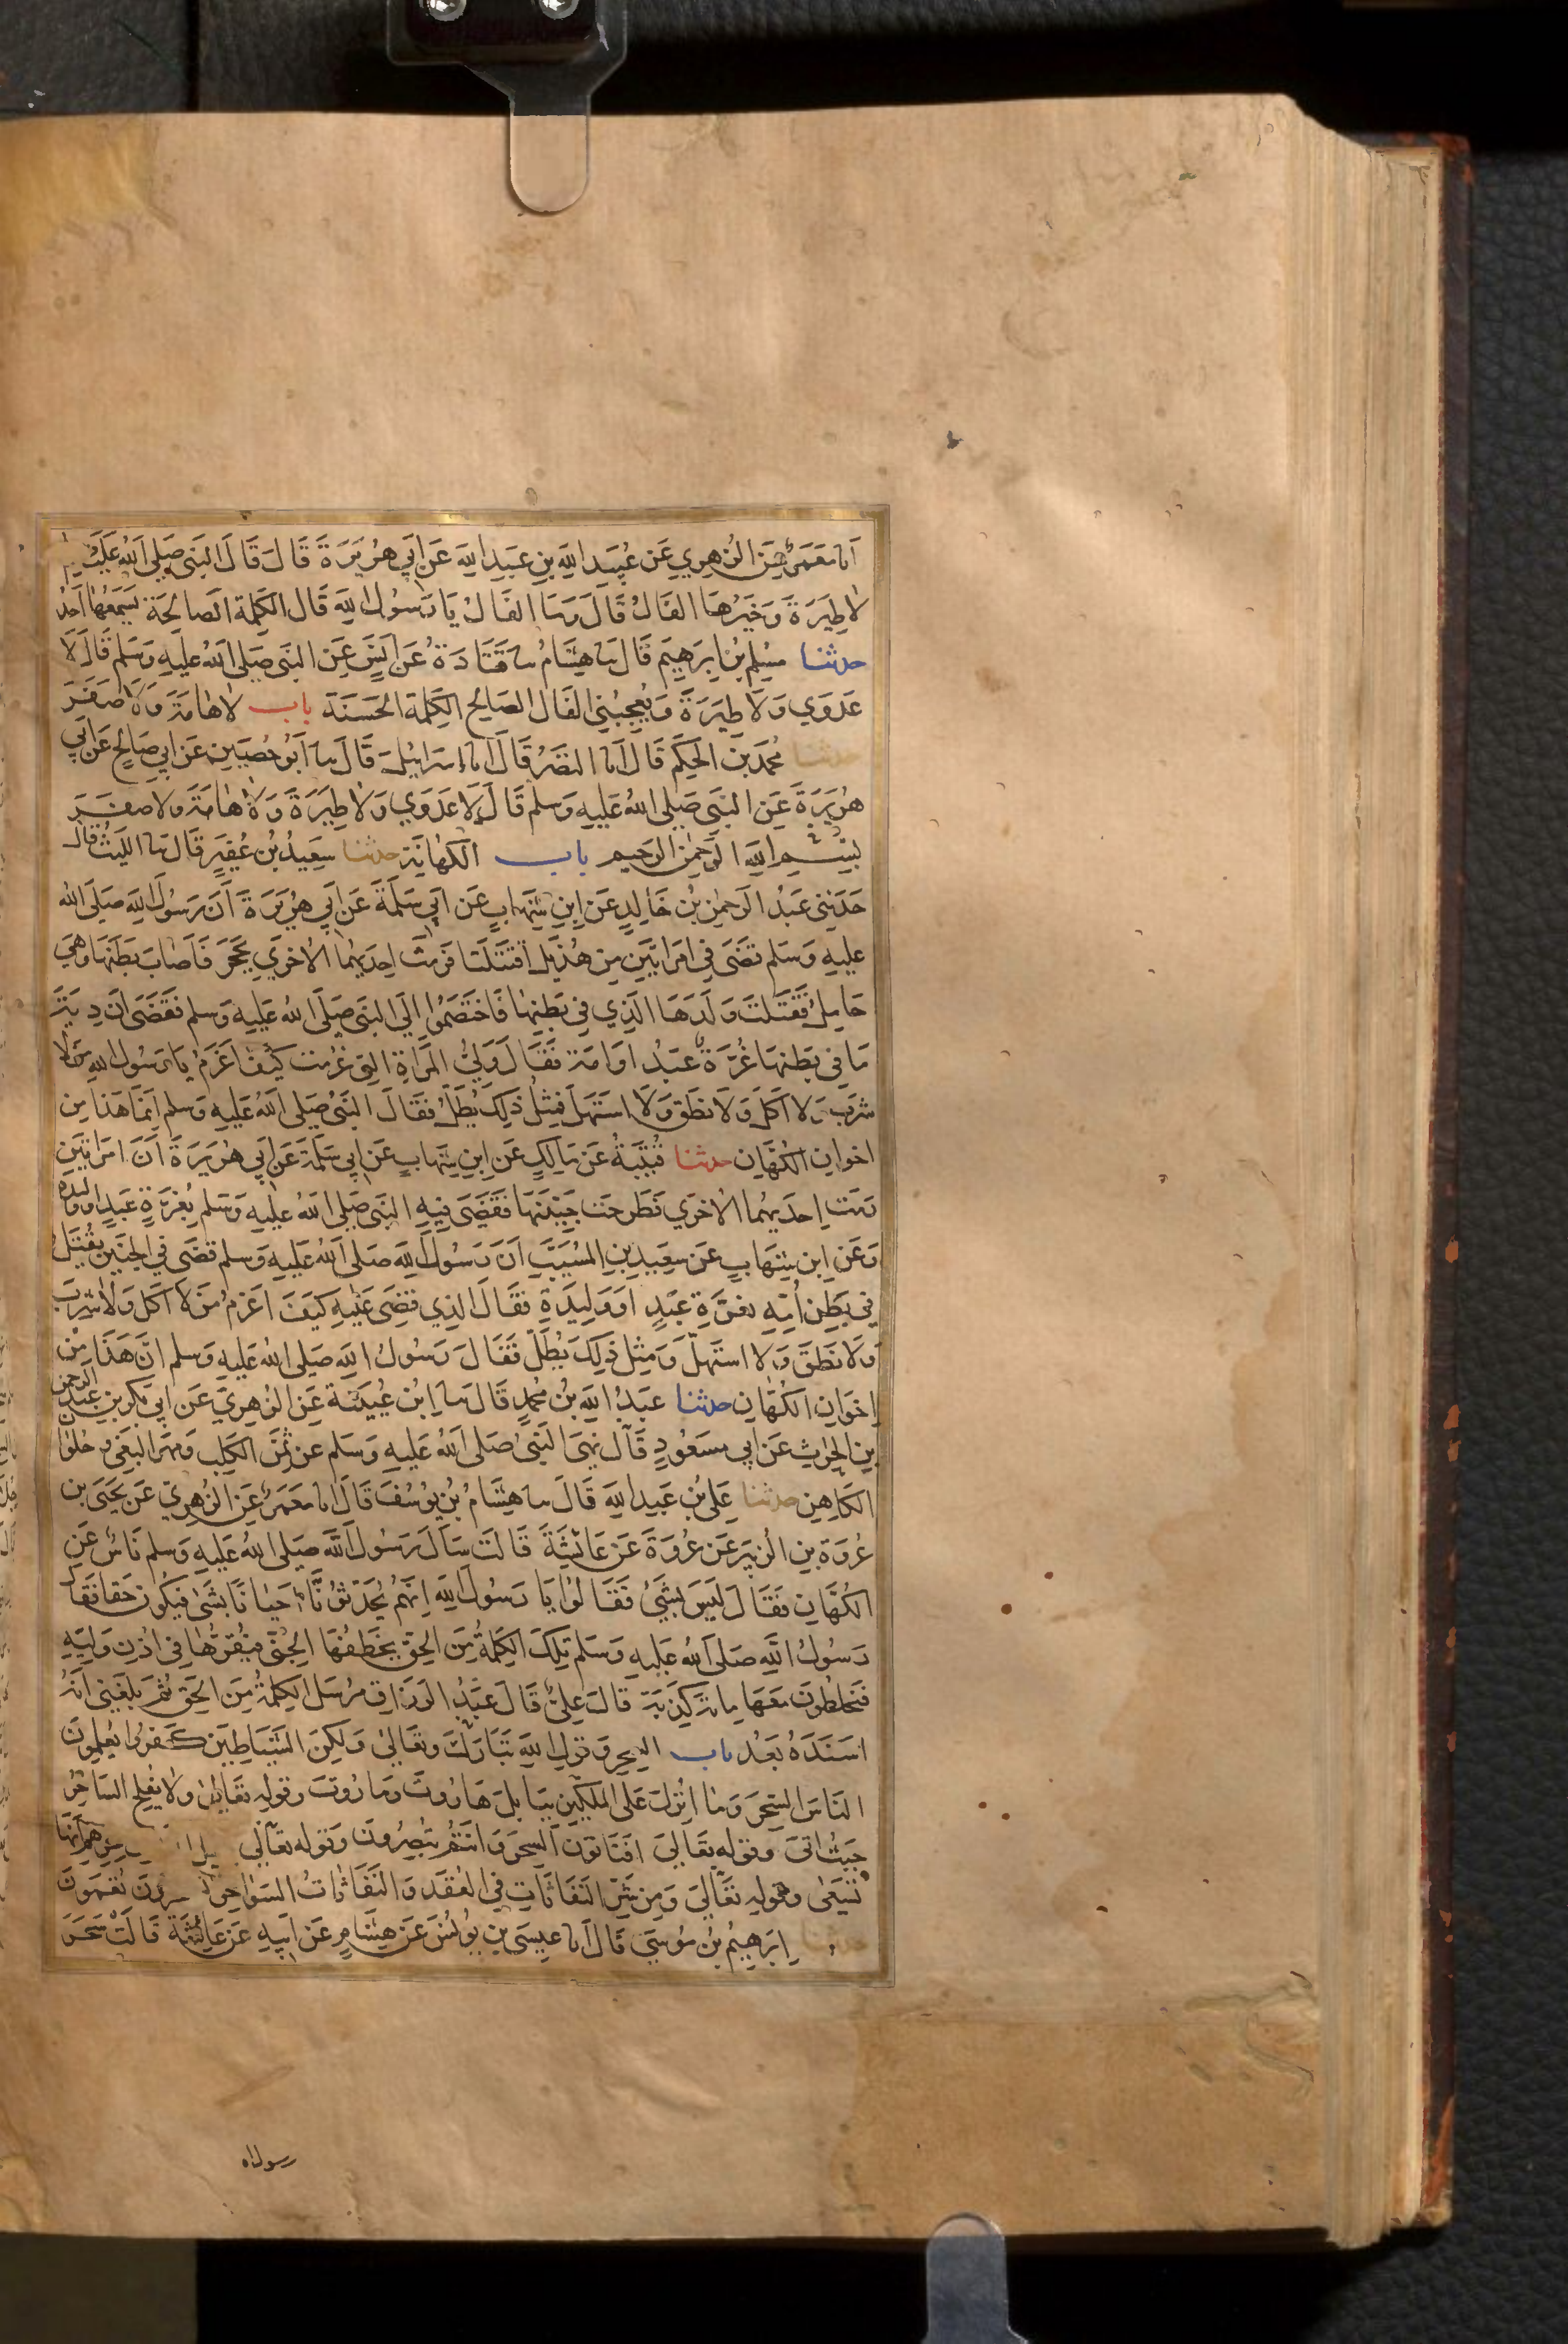 انا مَعمَرٌ عَنِ الزُهِري عَن عُبَيد اللهِ بنِ عَبدِ اللهِ عَن اَبي هُرَيرَةَ قَالَ قَالَ النَبي صَلى اللهُ عَلَيه وسلم
لاطِيَرَةَ وَخَيرُهَا الفَالُ قَالَ وَمَا الفَالُ يَا رَسُولَ اللهِ قَالَ الكَلِمة الصَالحَة يَسمَعُهَا اَحَدُكم
حدثنا مُسلم بنُ اِبرَهِيم قَالَ نا هِشَامٌ نا قَتَادَةُ عَن اَنَسٍ عَنِ النَبي صَلى اللهُ عَليهِ وَسَلم قَالَ لَا
عَدوَي وَلَا طِيَرَةَ وَيُعجِبُني الفَال الصَالِح الكَلِمة الحَسَنَة باب لاهَامَةَ وَلَا صَفَرَ
حدثنا مُحمد بنُ الحَكَم قَالَ انا النَضرُ قَالَ انا اِسرَائيلُ قَالَ نا اَبُو حُصَينٍ عَن اَبي صَالِحٍ عَن اَبي
هُرَيرَةَ عَن النَبي صَلى اللهُ عَليهِ وَسلم قَالَ لَاعَدوَي وَلَا طِيَرَةَ وَلَا هَامَةَ وَلَا صفَرَ
بِسْمِ اللهِ الرَحمٰنِ الرَحيمِ باب الكَهَانَة حدثنا سَعيدُ بنُ عُفَيرٍ قَالَ نا اللَيثُ قال
حَدَثَني عَبدُ الرَحمٰنِ بنُ خَالِدٍ عَن اِبنِ شِهَابٍ عَن اَبي سَلَمَةَ عَن اَبي هُرَيرَةَ اَنَ رَسُولَ اللهِ صَلَى الله
عَليهِ وَسَلم قَضَى في امرَاَتَينِ مِن هُذَيلٍ اقتَتَلَتَا فَرَمَت اِحدَيهُمَا الاُخرَي بِحَجَرٍ فَاَصَابَ بَطنَهَا وَهي
حَامِلٌ فَقَتَلَت وَلَدَهَا الَذِي في بَطنِهَا فَاختَصَمُوا اِلَي النَبي صَلَى اللهُ عَليهِ وَسلم فَقَضَى اَنَ دِيَةَ
مَا في بَطنِهَا غُرَةٌ عَبدٌ اَو اَمَة فَقَالَ وَليُ المَرأَةِ التِي غَرُمَت كَيفَ اَغرَمُ يَا رَسُولَ اللهِ مَن لَا
شرَبَ وَلا اَكَلَ وَلَا نطَقَ وَلَا استَهَلَ فمِثلُ ذلِكَ يُطَلُ فَقَالَ النَبيُ صَلى اللهُ عَليهِ وَسلم اِنَمَا هَذَا مِن
اِخوانِ الكُهَانِ حدثنا قُتَيبَةُ عَن مَالِكٍ عَن اِبنِ شِهَابٍ عَن اَبي سَلَمَةَ عَن اَبي هُرَيرَةَ اَنَ امرَاَتَينِ
رَمَت اِحدَيهُمَا الاُخرَي فَطَرحَت جَنِينَهَا فَقَضَى فِيهِ النَبي صَلى اللهُ عَليهِ وَسَلم بِغُرَةٍ عَبدٍ اَو وليدة
وَعَن اِبن شِهَابٍ عَن سَعِيدِ بنِ المُسَيَبِ اَنَ رَسُولَ اللهِ صَلى اللهُ عَليهِ وَسلم قَضَى في الجَنينِ يُقتَلُ
في بَطنِ اُمِهِ بغُرَةٍ عَبدٍ اَو وَليدَةٍ فقَالَ الذِي قُضِيَ عَليهِ كَيفَ اَغرَمُ مَن لَا اَكَلَ وَلَا شرِبَ
وَلَا نَطَقَ وَلا استَهلَّ وَمِثلُ ذلِكَ يُطَلُّ فَقَالَ رَسُولُ اللهِ صَلى اللهُ عَليهِ وَسلم اِنَّ هَذَا مِن
اِخَوانِ الكُهَّانِ حدثنا عَبدُ اللهِ بنُ مُحمدٍ قَالَ نا اِبنُ عُيَينَة عَنِ الزُهرِي عَن اَبي بَكرِ بنِ عَبدِ الرحمن
بنِ الحٰرِثِ عَن اَبي مسَعُودٍ قَالَ نَهَى النَبيُ صَلى اللهُ عَليهِ وَسَلم عَن ثَمَنِ الكَلبِ وَمَهرِ البَغيِ وحُلوَانِ
الكَاهِنِ حدثنا عَليُ بنُ عَبدِ اللهِ قَالَ نا هِشَامُ بنُ يوُسُفَ قَالَ انا مَعمَرٌ عَنِ الزُهرِيّ عَن يَحَيَى بن
عُروَةَ بنِ الزُبَيرِ عَن عُروَةَ عَن عَائِشَةَ قَالَت سَاَلَ رَسُولَ اللهِ صَلى اللهُ عَليهِ وَسلم نَاسٌ عَنِ
الكُهَّانِ فَقَالَ لَيسَ بِشَيءٍ فَقَالُوا يَا رَسُولَ اللهِ اِنَهُم يُحَدِثُونَّا اَحيَانًا بشَئٍ فيَكُون حَقا فَقال
رَسُولُ اللهِ صَلى اللهُ عَليهِ وَسَلم تِلكَ الكَلِمةُ مِنَ الحَقِ يَخطَفُهَا الجِنّي فيَقُرهَا في اُذُنِ وَليِهِ
فَيَخلِطُونَ مَعَهَا مِائَة كَذبَة قالَ عَليٌّ قَالَ عَبدُ الرَزاقِ مُرسَل الكَلِمةُ مِنَ الحَقِ ثُمَ بَلغَني اَنَهُ
اسنَدَهُ بَعدُ باب السِحرِ وَقولِ اللهِ تَبَارَكَ وتَعَالىٰ وَلٰكِنَ الشَيَاطِينَ كَفَرُوا يُعَلِمونَ
النَاسَ السِحرَ وَمَا اُنزِلَ عَلى المَلَكَينِ بِبَابِلَ هَارُوتَ وَمارُوتَ وَقولِهِ تعَالىٰ وَلَا يُفلِحُ السَاحِرُ
حَيثُ اَتَى وَقولِه تعَالىَ افَتَاتُونَ السِحرَ وَاَنتُم تبُصِرُونَ وَقولِه تعَالَي
تَسعَىٰ وقولِهِ تعَالَىَ وَمِن شَرّ النَفَاثَاتِ في العُقَدِ وَالنَفَاثَاتُ السَوَاحِرُ
حدثنا اِبرَهِيمُ بنُ مُوسَى قَالَ انا عيِسَى بن يوُنُسَ عَن هِشَامٍ عَن اَبيهِ عَن عَائِشَةَ قَالَت سَحَرَ
رسول الله